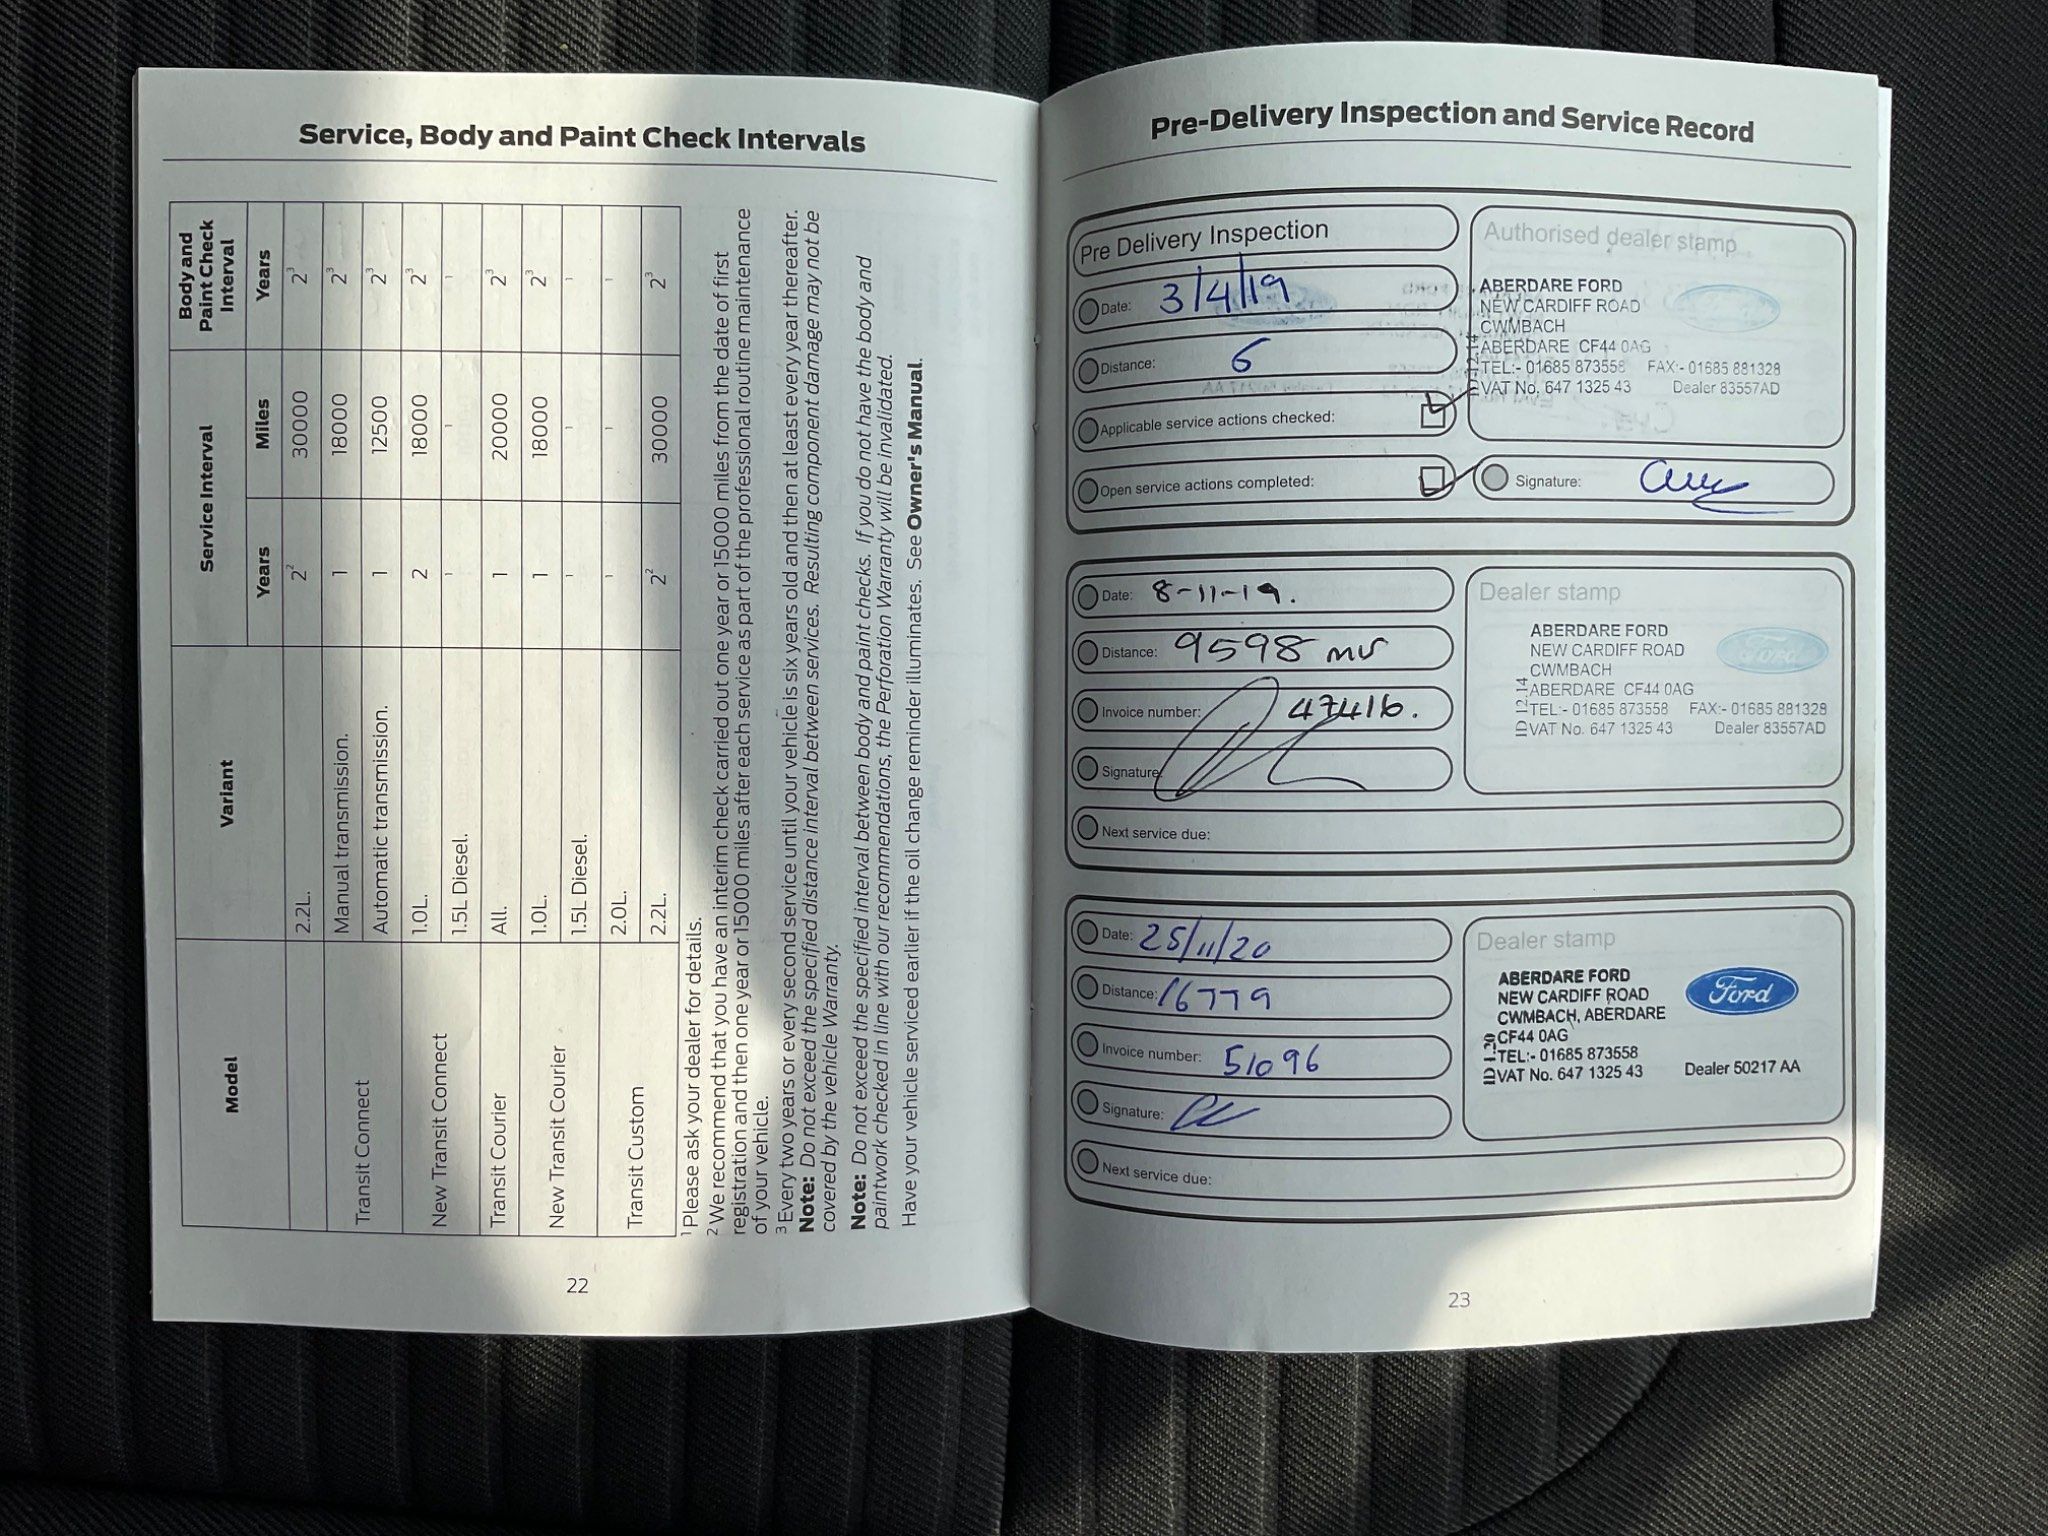 Service, Body and Paint Check Intervals
Model Variant Service Interval Body and Paint Check Interval
Years Miles Years
2.2L. 2² 30000 2³
Transit Connect Manual transmission. 1 18000 2³
Automatic transmission. 1 12500 2³
New Transit Connect 1.0L. 2 18000 2³
1.5L Diesel. 1 1 1
Transit Courier All. 1 20000 2³
New Transit Courier 1.0L. 1 18000 2³
1.5L Diesel. 1 1 1
Transit Custom 2.0L. 1 1 1
2.2L. 2² 30000 2³
¹ Please ask your dealer for details.
² We recommend that you have an interim check carried out one year or 15000 miles from the date of first
registration and then one year or 15000 miles after each service as part of the professional routine maintenance
of your vehicle.
³ Every two years or every second service until your vehicle is six years old and then at least every year thereafter.
Note: Do not exceed the specified distance interval between services. Resulting component damage may not be
covered by the vehicle Warranty.
Note: Do not exceed the specified interval between body and paint checks. If you do not have the body and
paintwork checked in line with our recommendations, the Perforation Warranty will be invalidated.
Have your vehicle serviced earlier if the oil change reminder illuminates. See Owner's Manual.
22
Pre-Delivery Inspection and Service Record
Pre Delivery Inspection
Date: 3/4/19
Distance: 6
Applicable service actions checked:
Open service actions completed:
Authorised dealer stamp
ABERDARE FORD
NEW CARDIFF ROAD
CWMBACH
ABERDARE CF44 0AG
TEL:- 01685 873558 FAX:- 01685 881328
VAT No. 647 1325 43 Dealer 83557AD
Signature:
Date: 8-11-19.
Distance: 9598
Invoice number: 47416.
Signature:
Next service due:
Dealer stamp
Ford
ABERDARE FORD
NEW CARDIFF ROAD
CWMBACH
ABERDARE CF44 0AG
TEL:- 01685 873558 FAX:- 01685 881328
VAT No. 647 1325 43 Dealer 83557AD
ID 12.14
Date: 25/11/20
Distance: 16779
Invoice number: 51096
Signature:
Next service due:
Dealer stamp
Ford
ABERDARE FORD
NEW CARDIFF ROAD
CWMBACH, ABERDARE
CF44 0AG
TEL:- 01685 873558
VAT No. 647 1325 43 Dealer 50217 AA
23